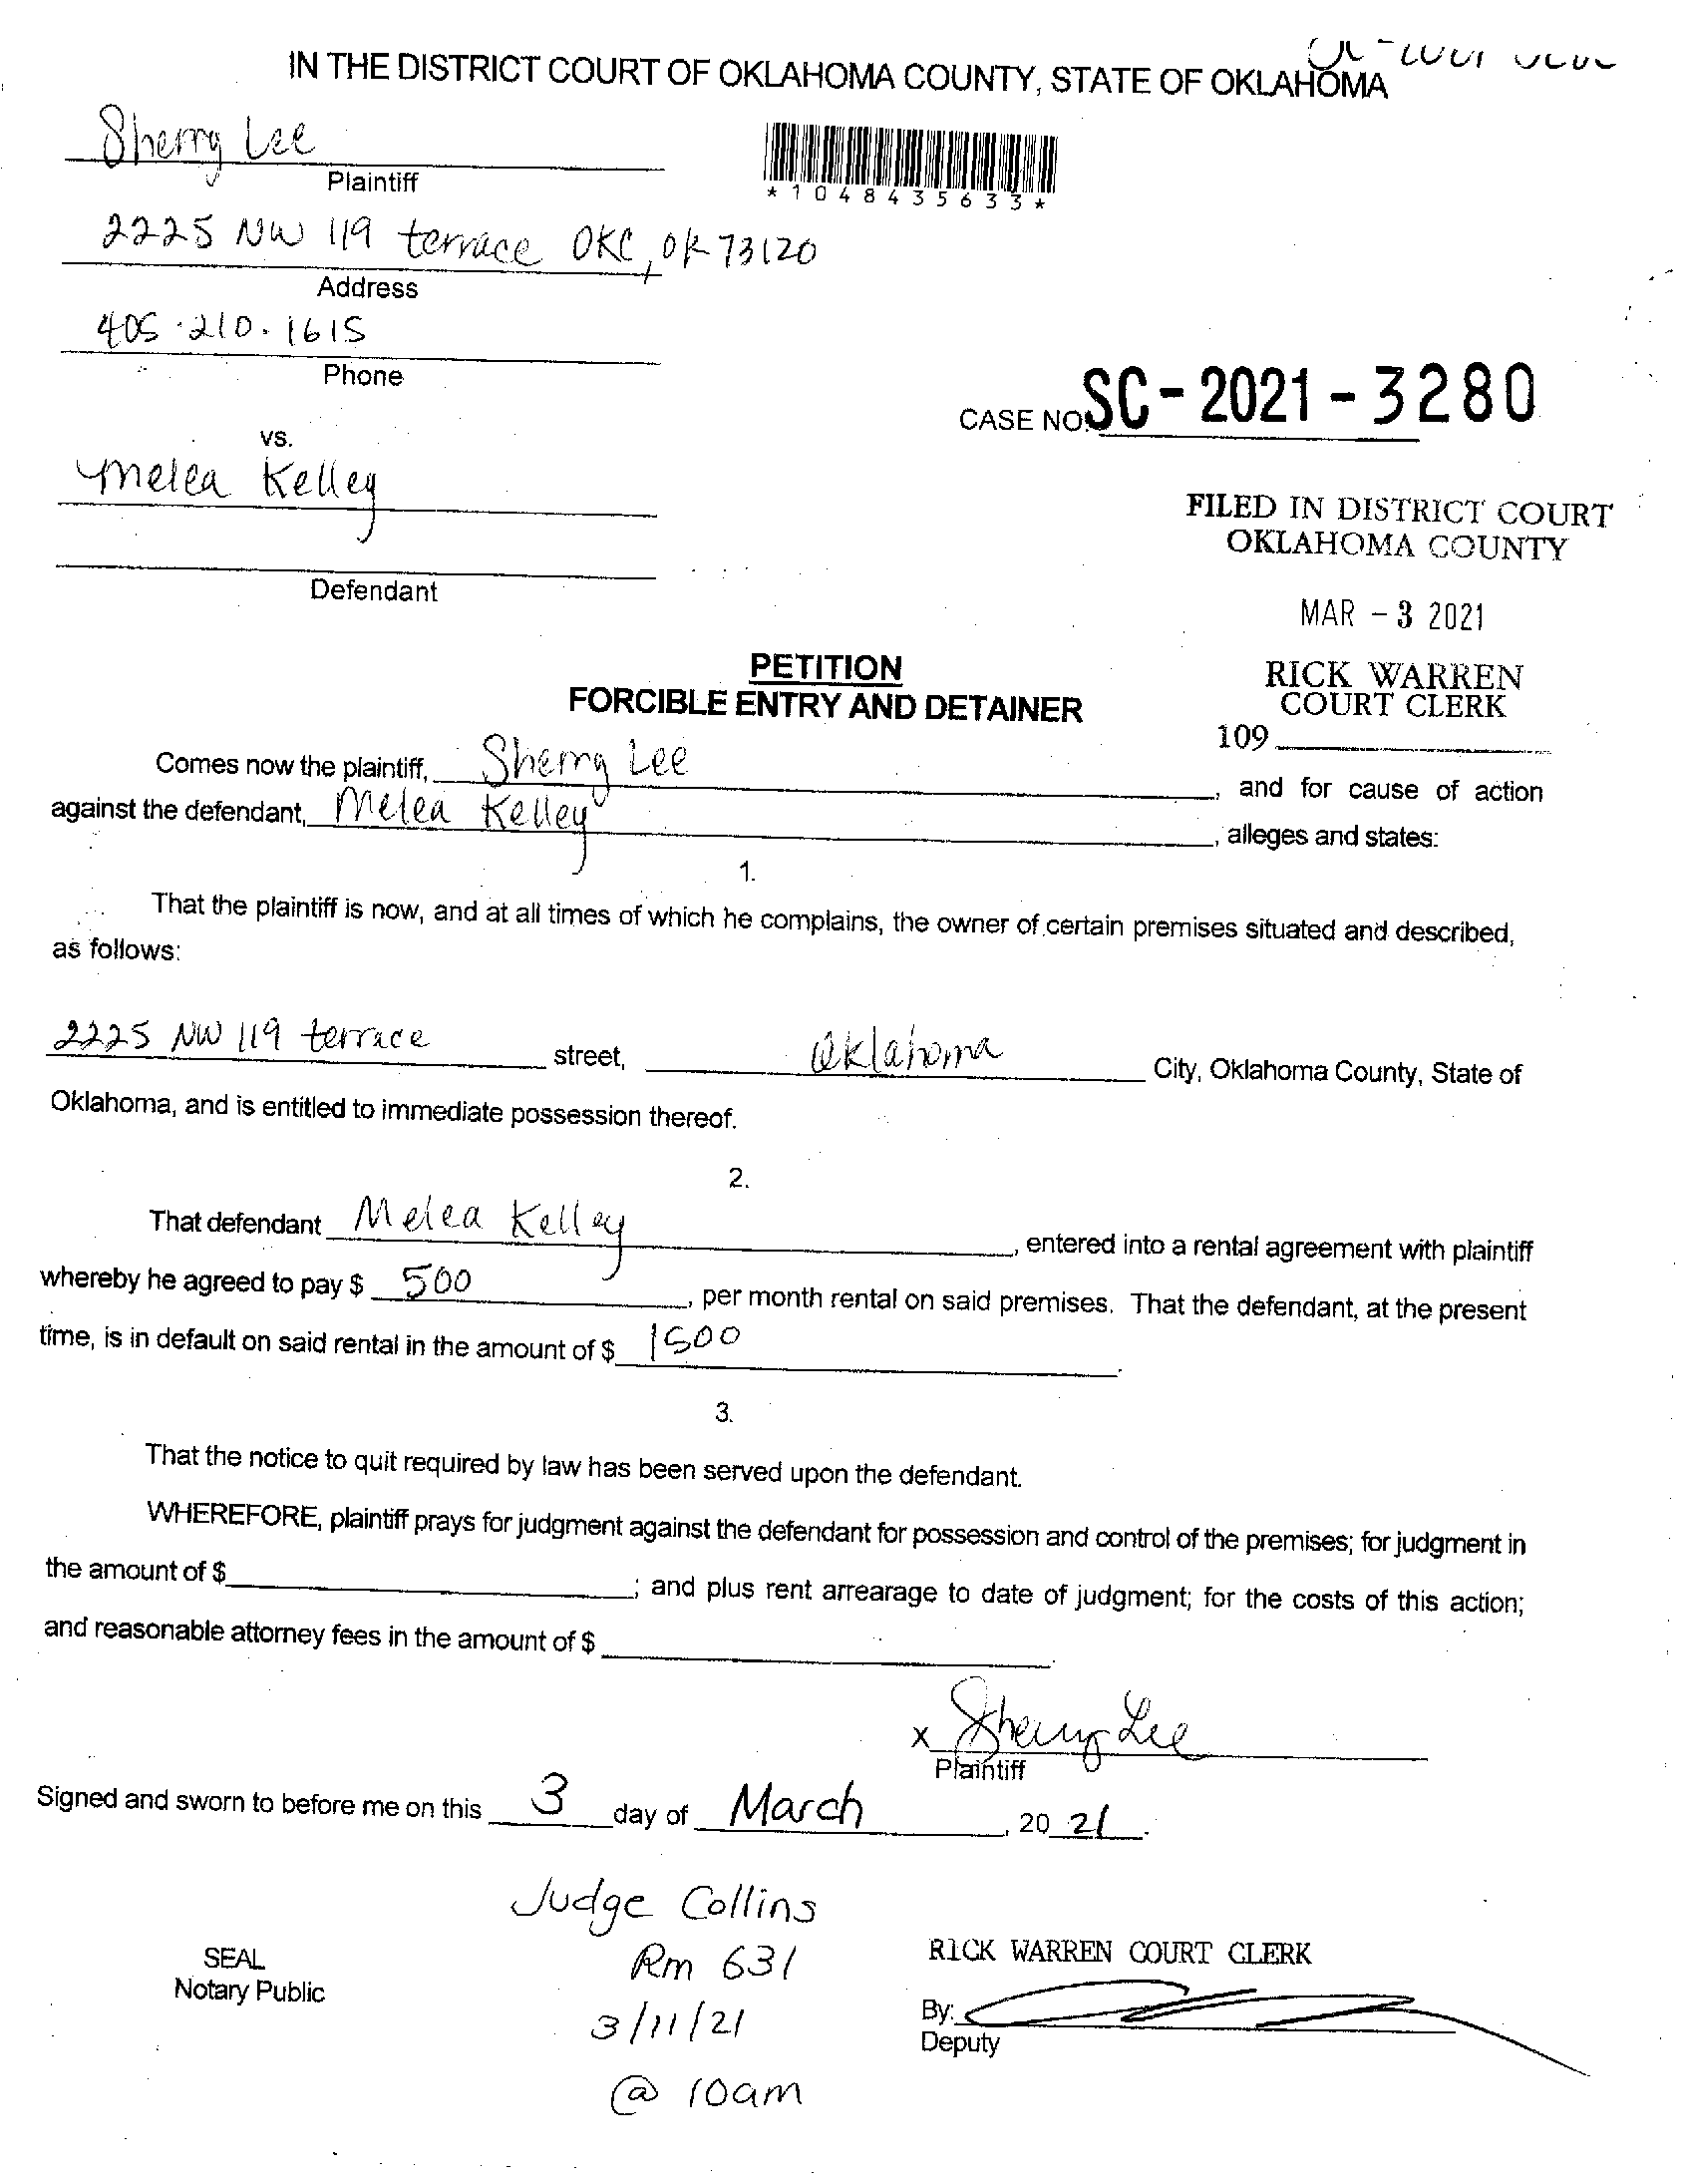 IN THE DISTRICT COURT OF OKLAHOMA COUNTY, STATE OF OKLAHOMA
Sherry Lee
Plaintiff
*1048435633*
2225 NW 119 terrace OKC, OK 73120
Address
405.210.1615
Phone
CASE NO. SC-2021-3280
vs.
Melea Kelley
Defendant
FILED IN DISTRICT COURT
OKLAHOMA COUNTY
MAR - 3 2021
RICK WARREN
COURT CLERK
109
PETITION
FORCIBLE ENTRY AND DETAINER
Comes now the plaintiff, Sherry Lee, and for cause of action
against the defendant, Melea Kelley, alleges and states:
1.
That the plaintiff is now, and at all times of which he complains, the owner of certain premises situated and described,
as follows:
2225 NW 119 terrace street, Oklahoma City, Oklahoma County, State of
Oklahoma, and is entitled to immediate possession thereof.
2.
That defendant Melea Kelley, entered into a rental agreement with plaintiff
whereby he agreed to pay $ 500, per month rental on said premises. That the defendant, at the present
time, is in default on said rental in the amount of $ 1500.
3.
That the notice to quit required by law has been served upon the defendant.
WHEREFORE, plaintiff prays for judgment against the defendant for possession and control of the premises; for judgment in
the amount of $ ; and plus rent arrearage to date of judgment; for the costs of this action;
and reasonable attorney fees in the amount of $ .
x Sherry Lee
Plaintiff
Signed and sworn to before me on this 3 day of March, 20 21.
Judge Collins
Rm 631
3/11/21
@ 10am
SEAL
Notary Public
RICK WARREN COURT CLERK
By:
Deputy